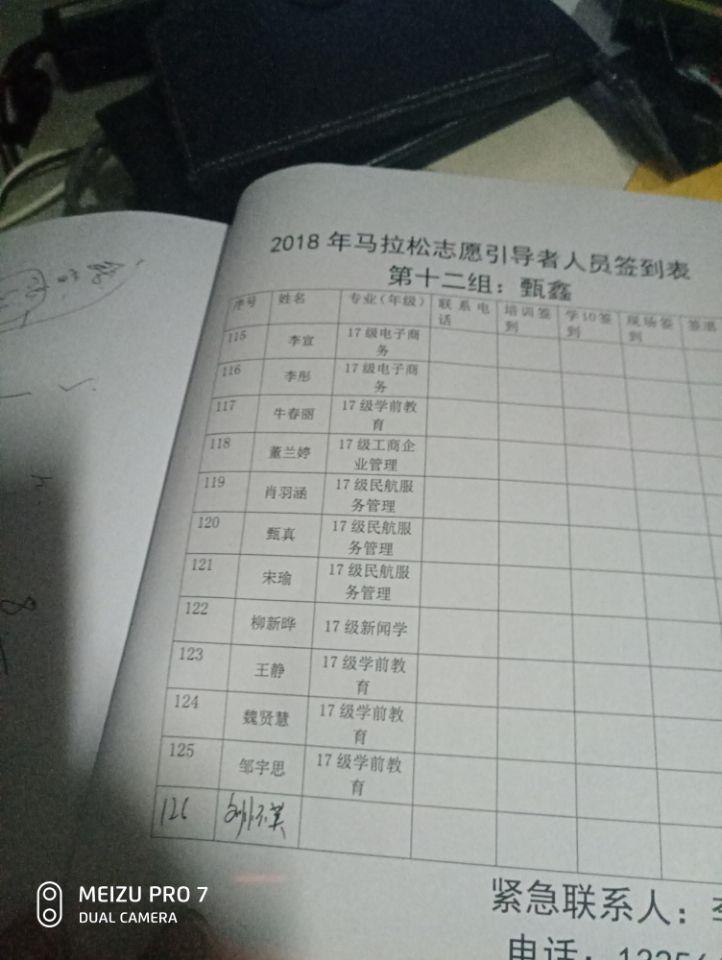 2018 年马拉松志愿引导者人员签到表
第十二组：甄鑫
序号 姓名 专业（年级） 联系电话 培训签到 学10签到 现场签到 签退
115 李宣 17 级电子商务
116 李彤 17 级电子商务
117 牛春丽 17 级学前教育
118 董兰婷 17 级工商企业管理
119 肖羽涵 17 级民航服务管理
120 甄真 17 级民航服务管理
121 宋瑜 17 级民航服务管理
122 柳新晔 17 级新闻学
123 王静 17 级学前教育
124 魏贤慧 17 级学前教育
125 邹宇思 17 级学前教育
126
紧急联系人：
电话：
MEIZU PRO 7
DUAL CAMERA